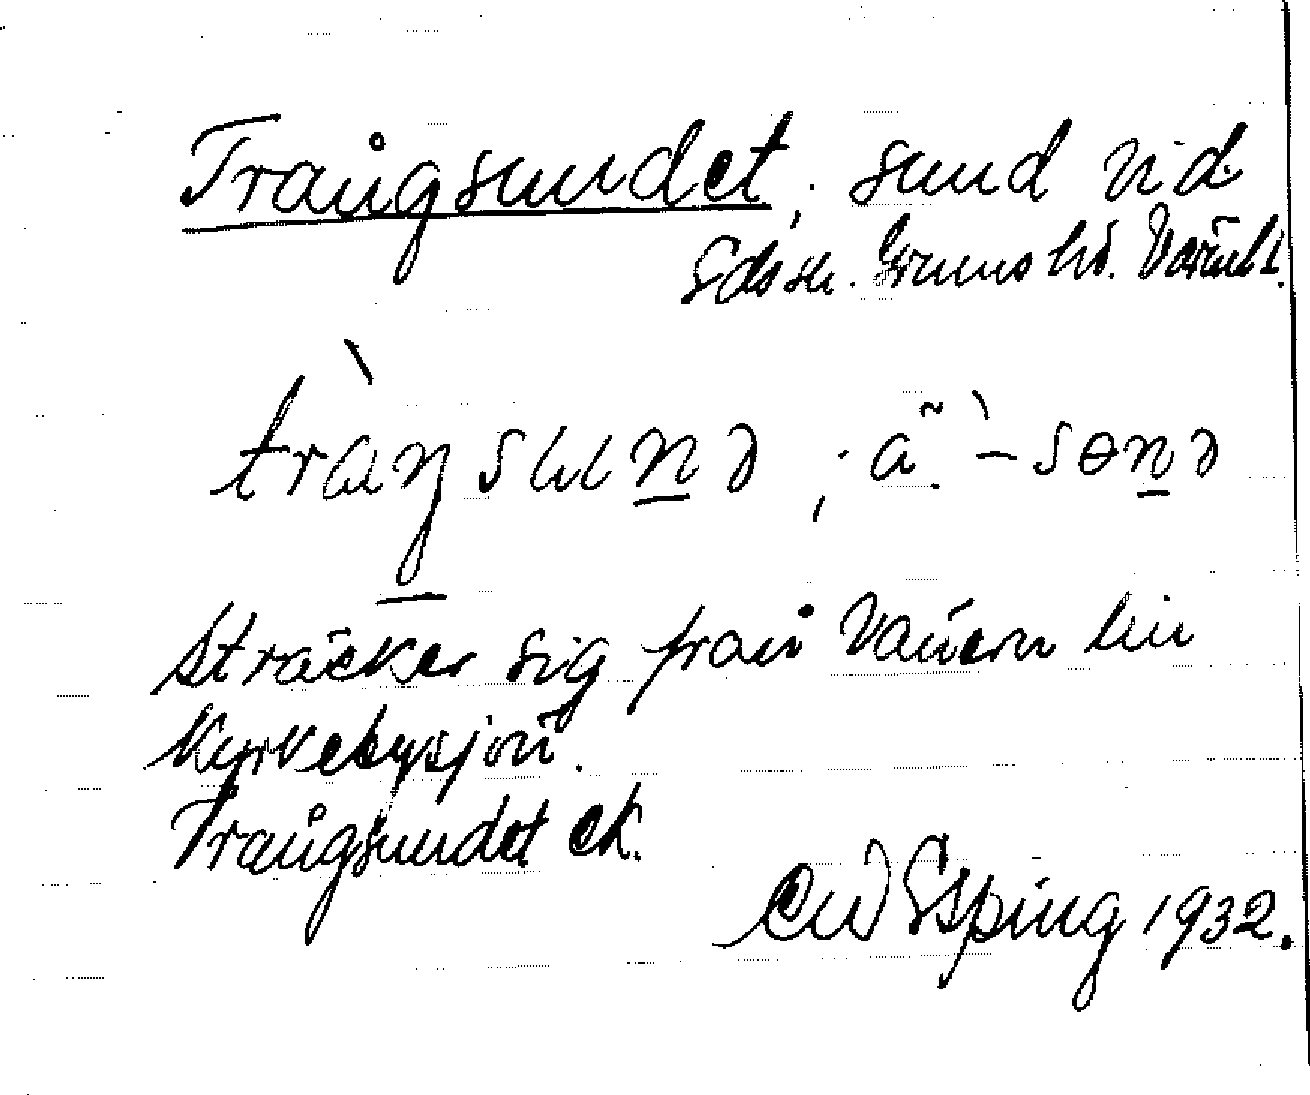 Trångsundet; sund vid
Edssn. Grums hd. Värml.
tràŋsunə ; ã̀-sɵnə
sträcker sig från Vänern till
Kyrkebysjön.
Trångsundet ek.
CW Esping 1932.